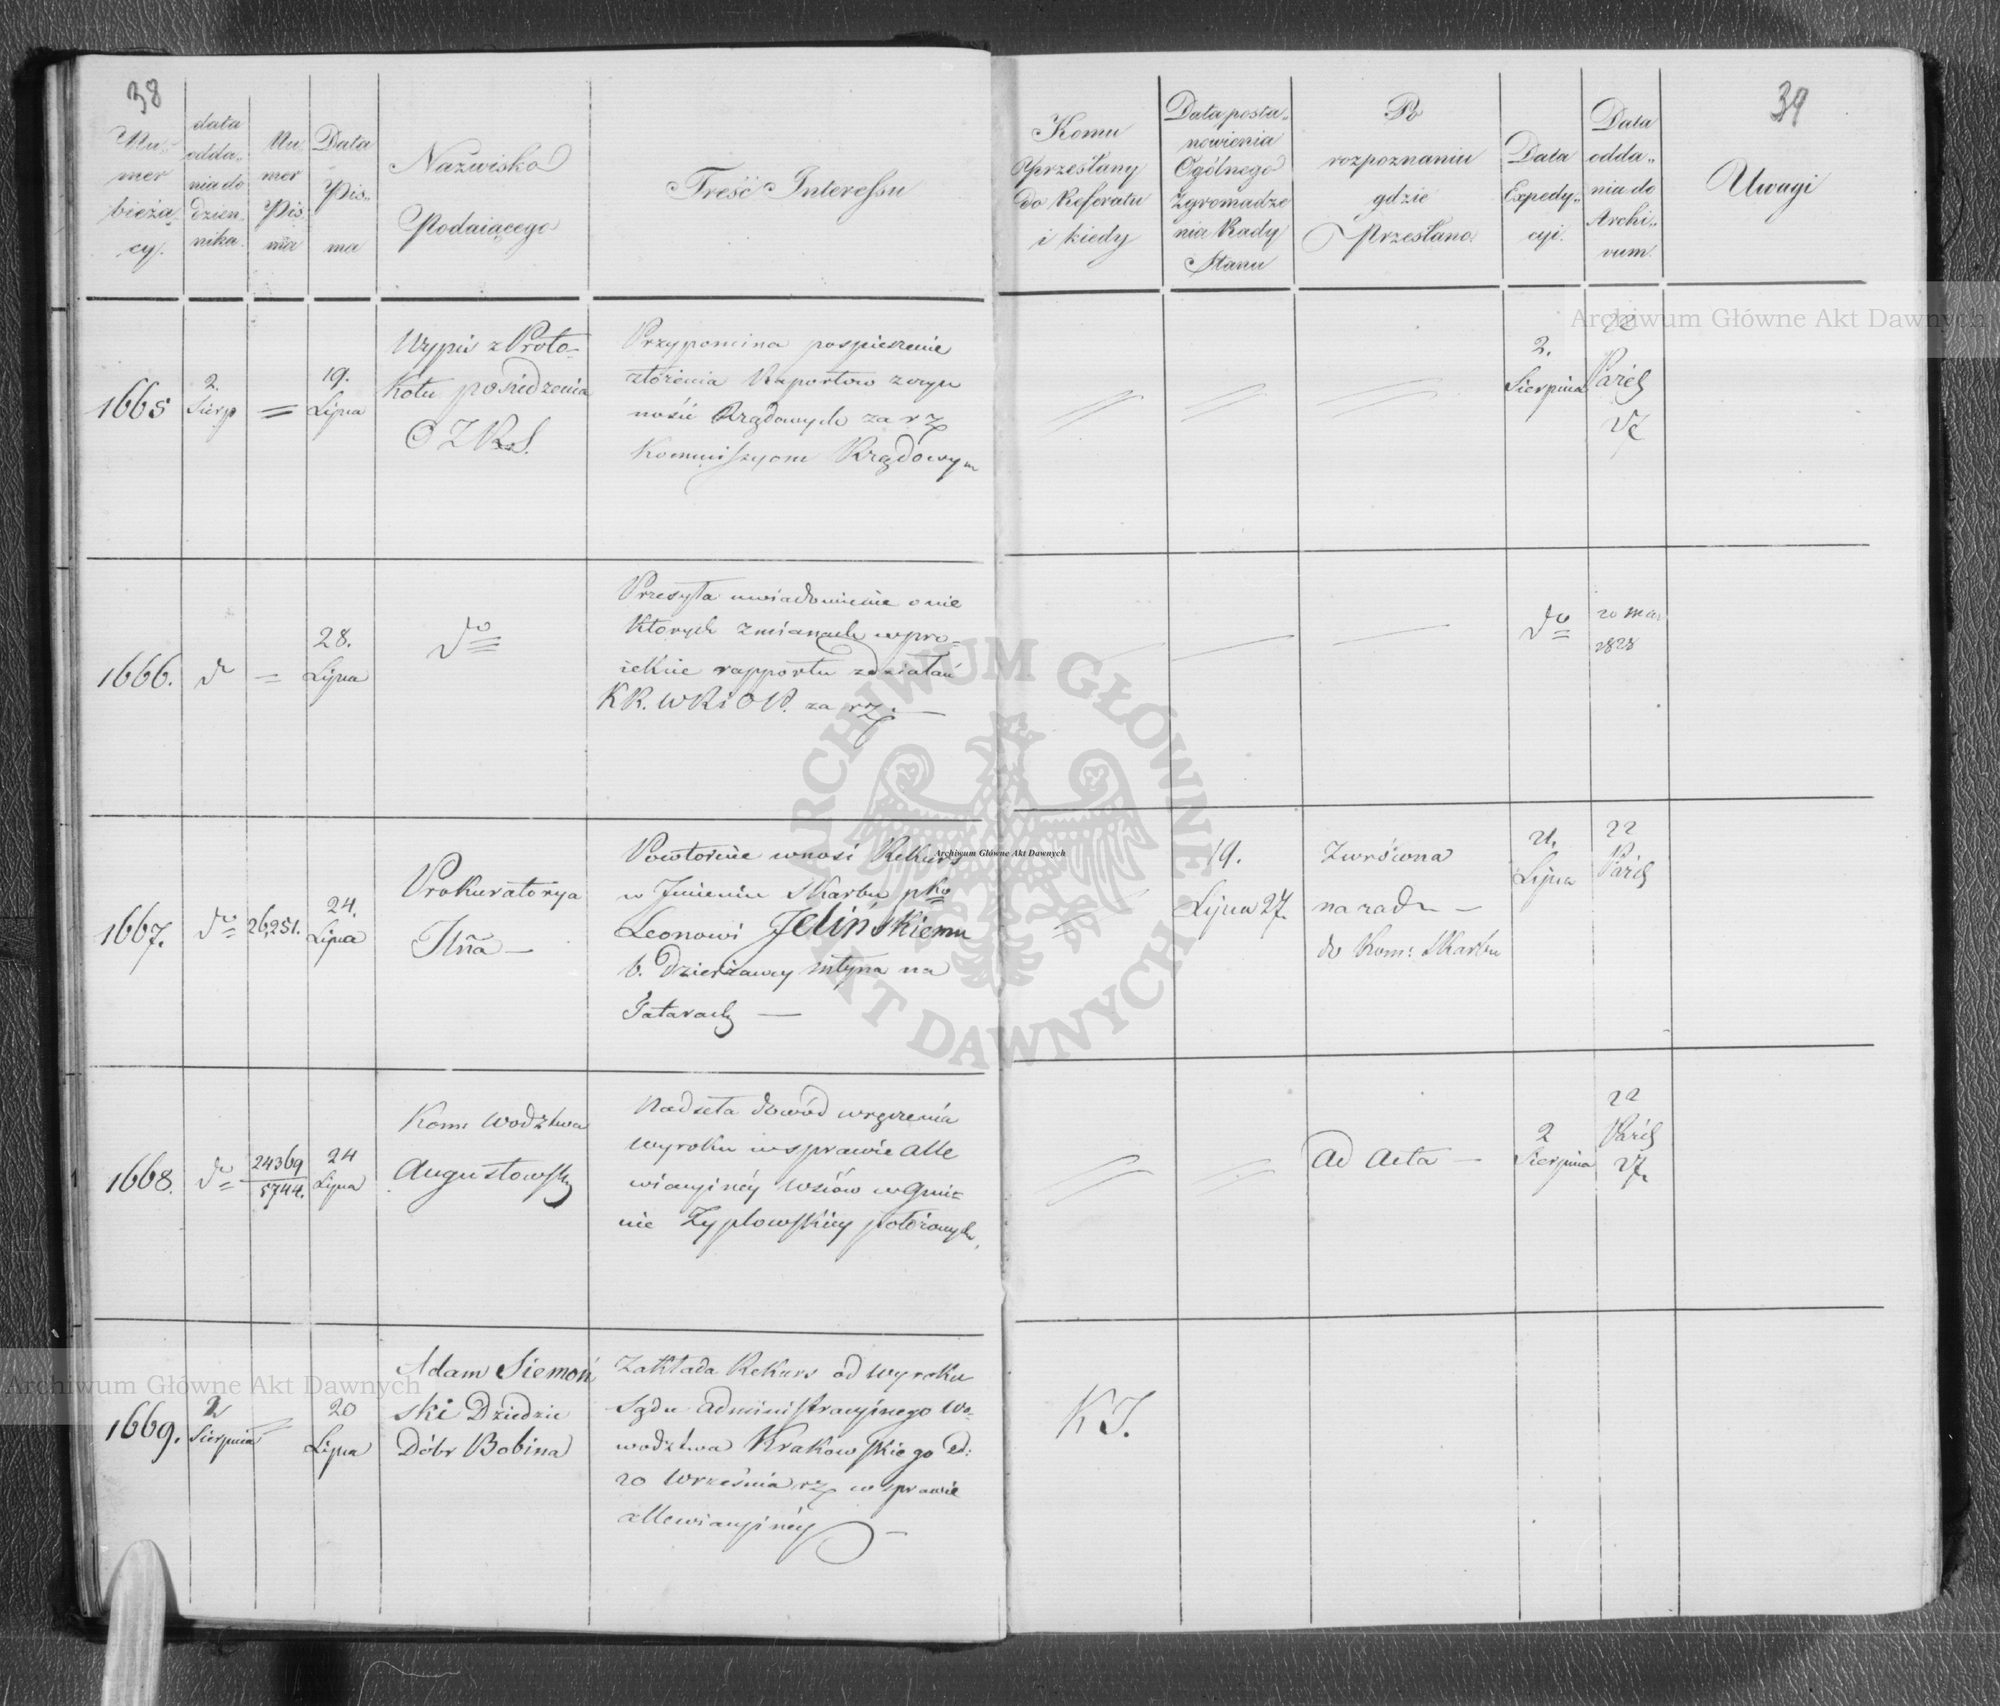 38
Nu-
mer
bieżą-
cy.
data
odda-
nia do
dzien-
nika.
Nu
mer
Pis
ma
Data
Pis-
ma
Nazwisko
Podaiącego
Treść Interessu
Komu
przesłany
do Referatu
i kiedy
Data posta-
nowienia
Ogólnego
Zgromadze
nia Rady
Stanu
Po
rozpoznaniu
gdzie
Przesłano
Data
Expedy-
cyi.
Data
odda-
nia do
Archi-
vum.
39
Uwagi
1665
2.
Sierp
=
19.
Lipca
Wypis z Proto-
kołu posiedzenia
O Z R S.
Przypomina pospieszenie
złożenia Raportow z czyn
ności Rządowych za r z
Kommissyom Rządowym
2.
Sierpnia
22
Paźd
27
1666.
do
=
28.
Lipca
do
Przesyła uwiadomienie o nie
których zmianach w pro-
iekcie rapportu z działań
KR. WR i OP. za rz. —
do
20 Mar
1828
1667.
do
26,251.
24.
Lipca
Prokuratorya
Jlña —
Powtórnie wnosi Rekurs
w Jmieniu Skarbu pko
Leonowi Jelińskiemu
b. Dzierżawcy młyna na
Tatarach —
19.
Lipca 27.
Zwrócona
na rade —
do Kom: Skarbu
21.
Lipca
22
Paźd
1668.
do
24369
5744.
24
Lipca
Kom: Wodztwa
Augustowsky
Nadseła dowód wręczenia
wyroku w sprawie alle
wiacyinéy wsiów w Gmi-
nie Zyplowskiey położonych,
Ad Acta —
2
Sierpnia
22
Paźd
27.
1669.
2
Sierpnia
=
20
Lipca
Adam Siemoń
ski Dziedzic
Dóbr Bobina
Zakłada Rekurs od wyroku
Sądu Administracyinego Wo-
wodztwa Krakowskiego d:
20 Września rz w sprawie
allewiacyinéy —
K J.
Archiwum Główne Akt Dawnych
Archiwum Główne Akt Dawnych
Archiwum Główne Akt Dawnych
ARCHIWUM GŁÓWNE AKT DAWNYCH